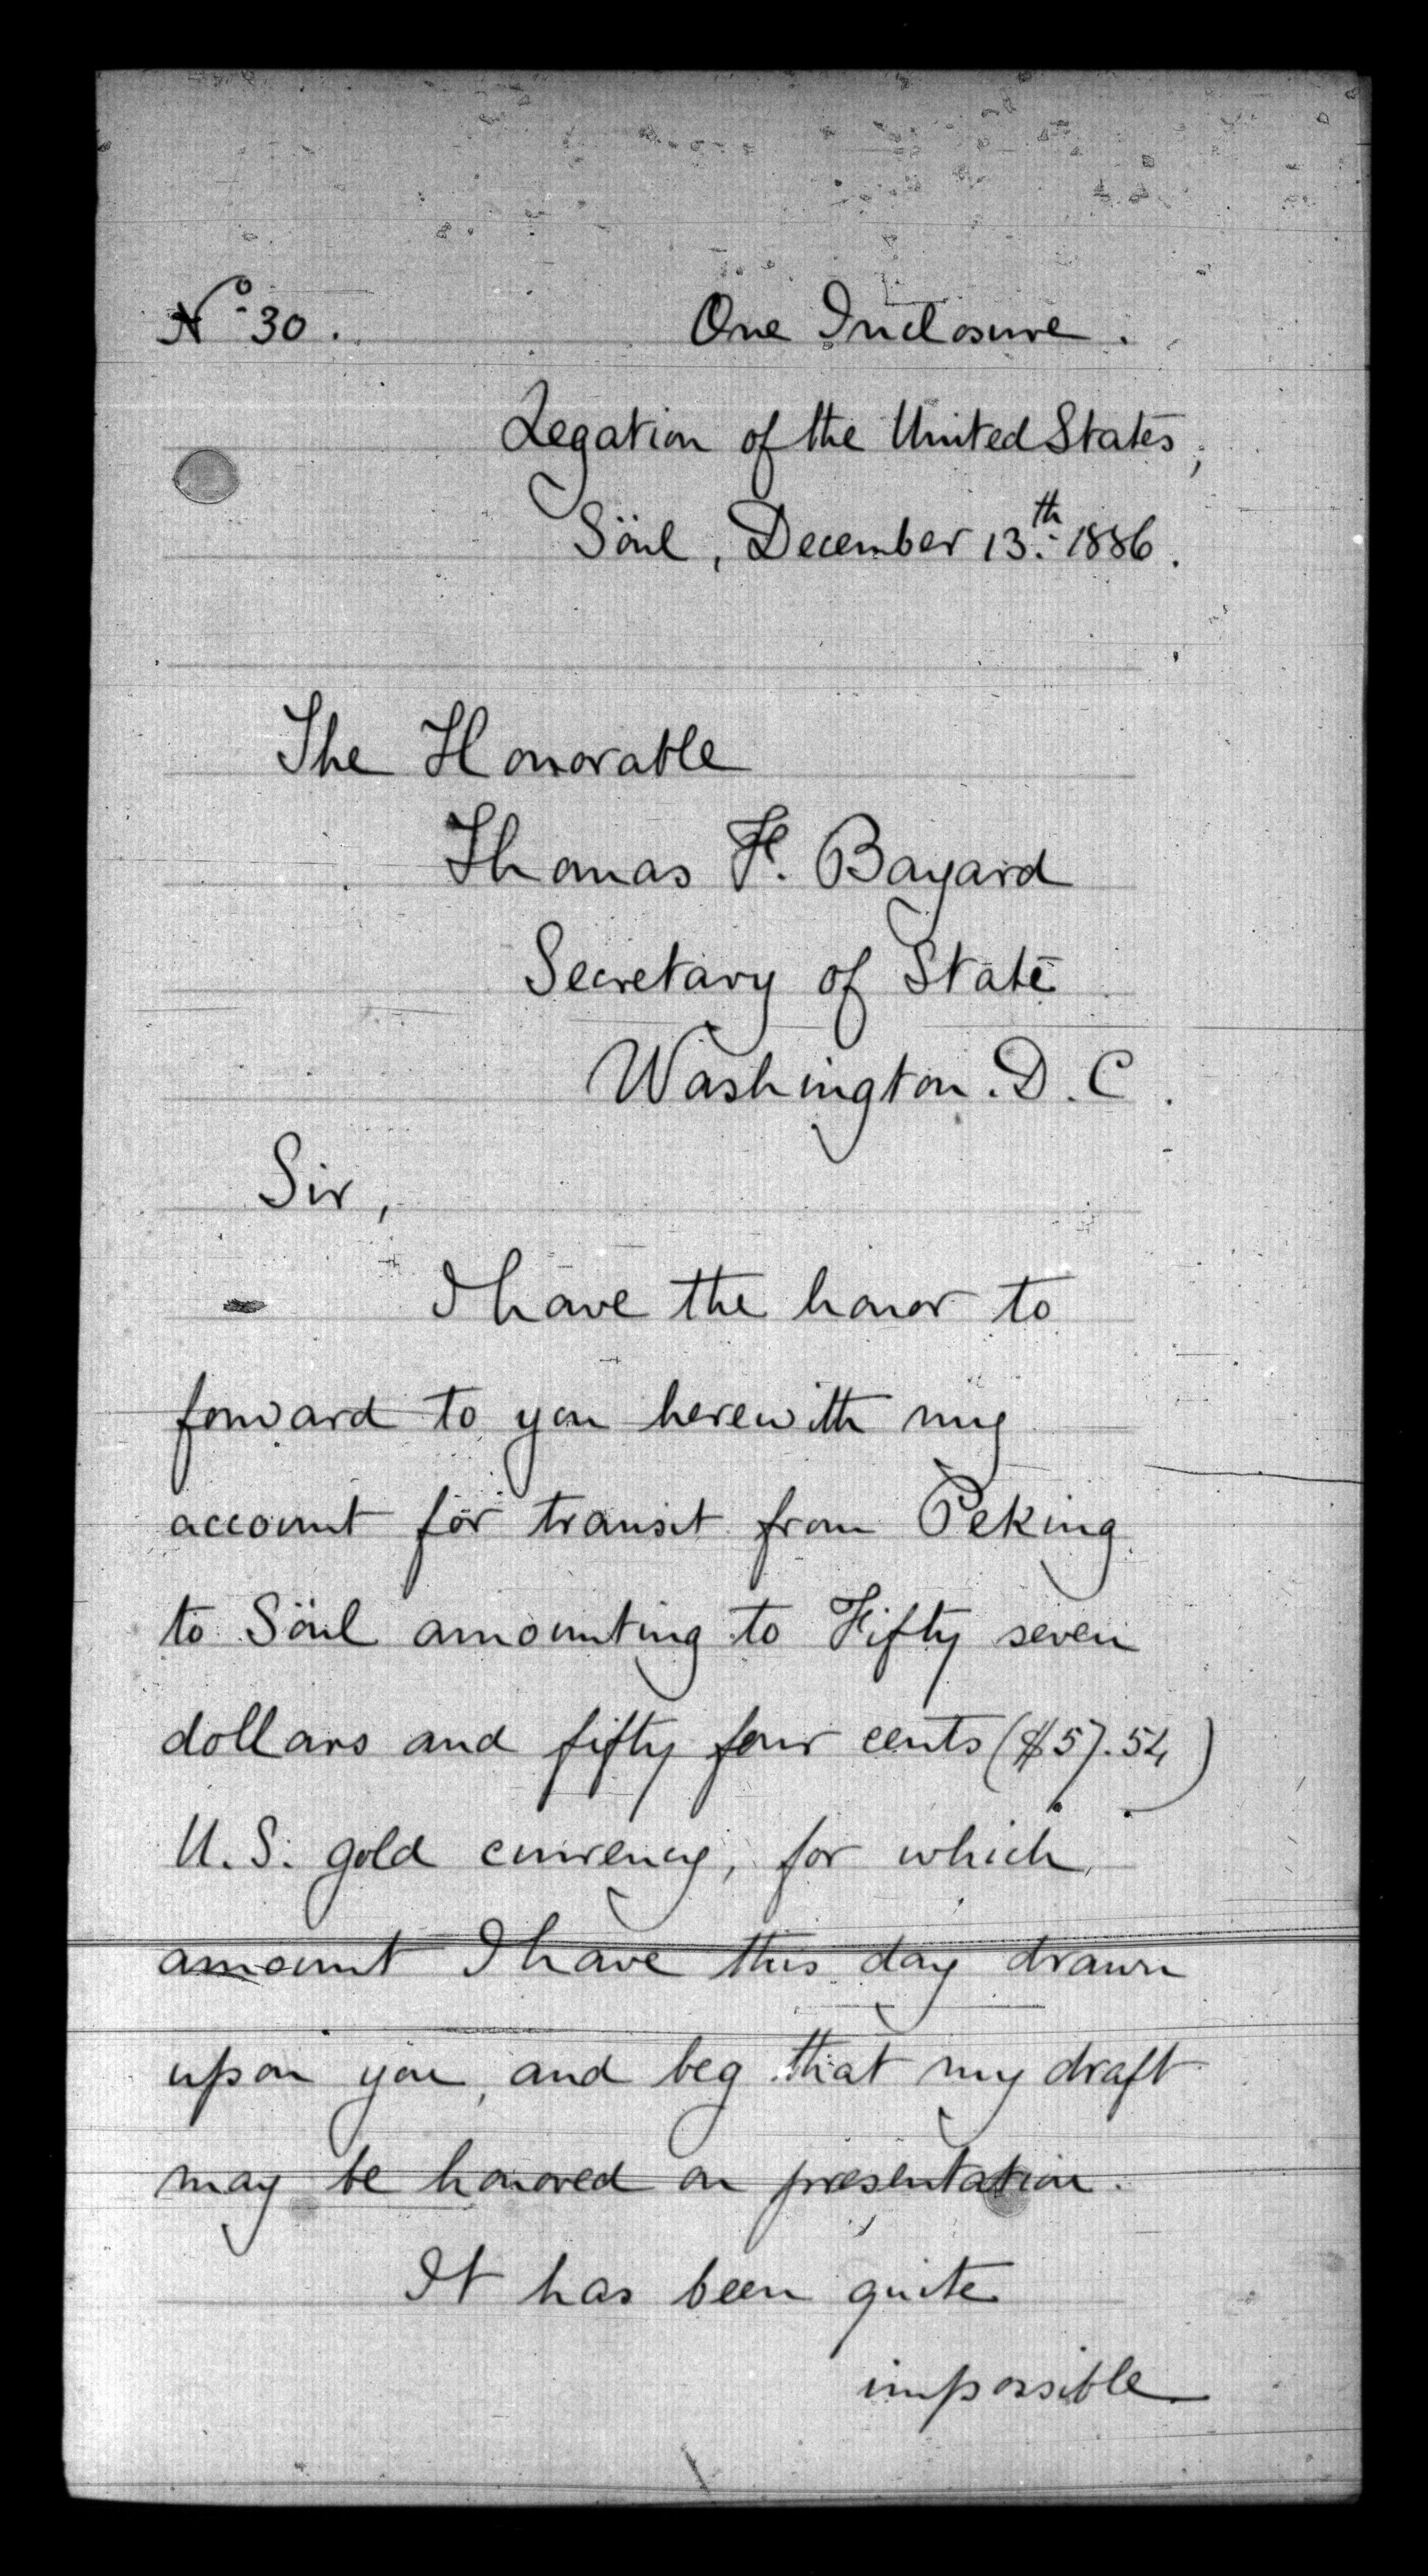 Nº 30. One Inclosure.
Legation of the United States,
Söul, December 13th 1886.
The Honorable
Thomas F. Bayard
Secretary of State
Washington. D. C.
Sir,
I have the honor to
forward to you herewith my
account for transit from Peking
to Söul amounting to Fifty seven
dollars and fifty four cents ($57.54)
U.S. gold currency, for which
amount I have this day drawn
upon you, and beg that my draft
may be honored on presentation.
It has been quite
impossible